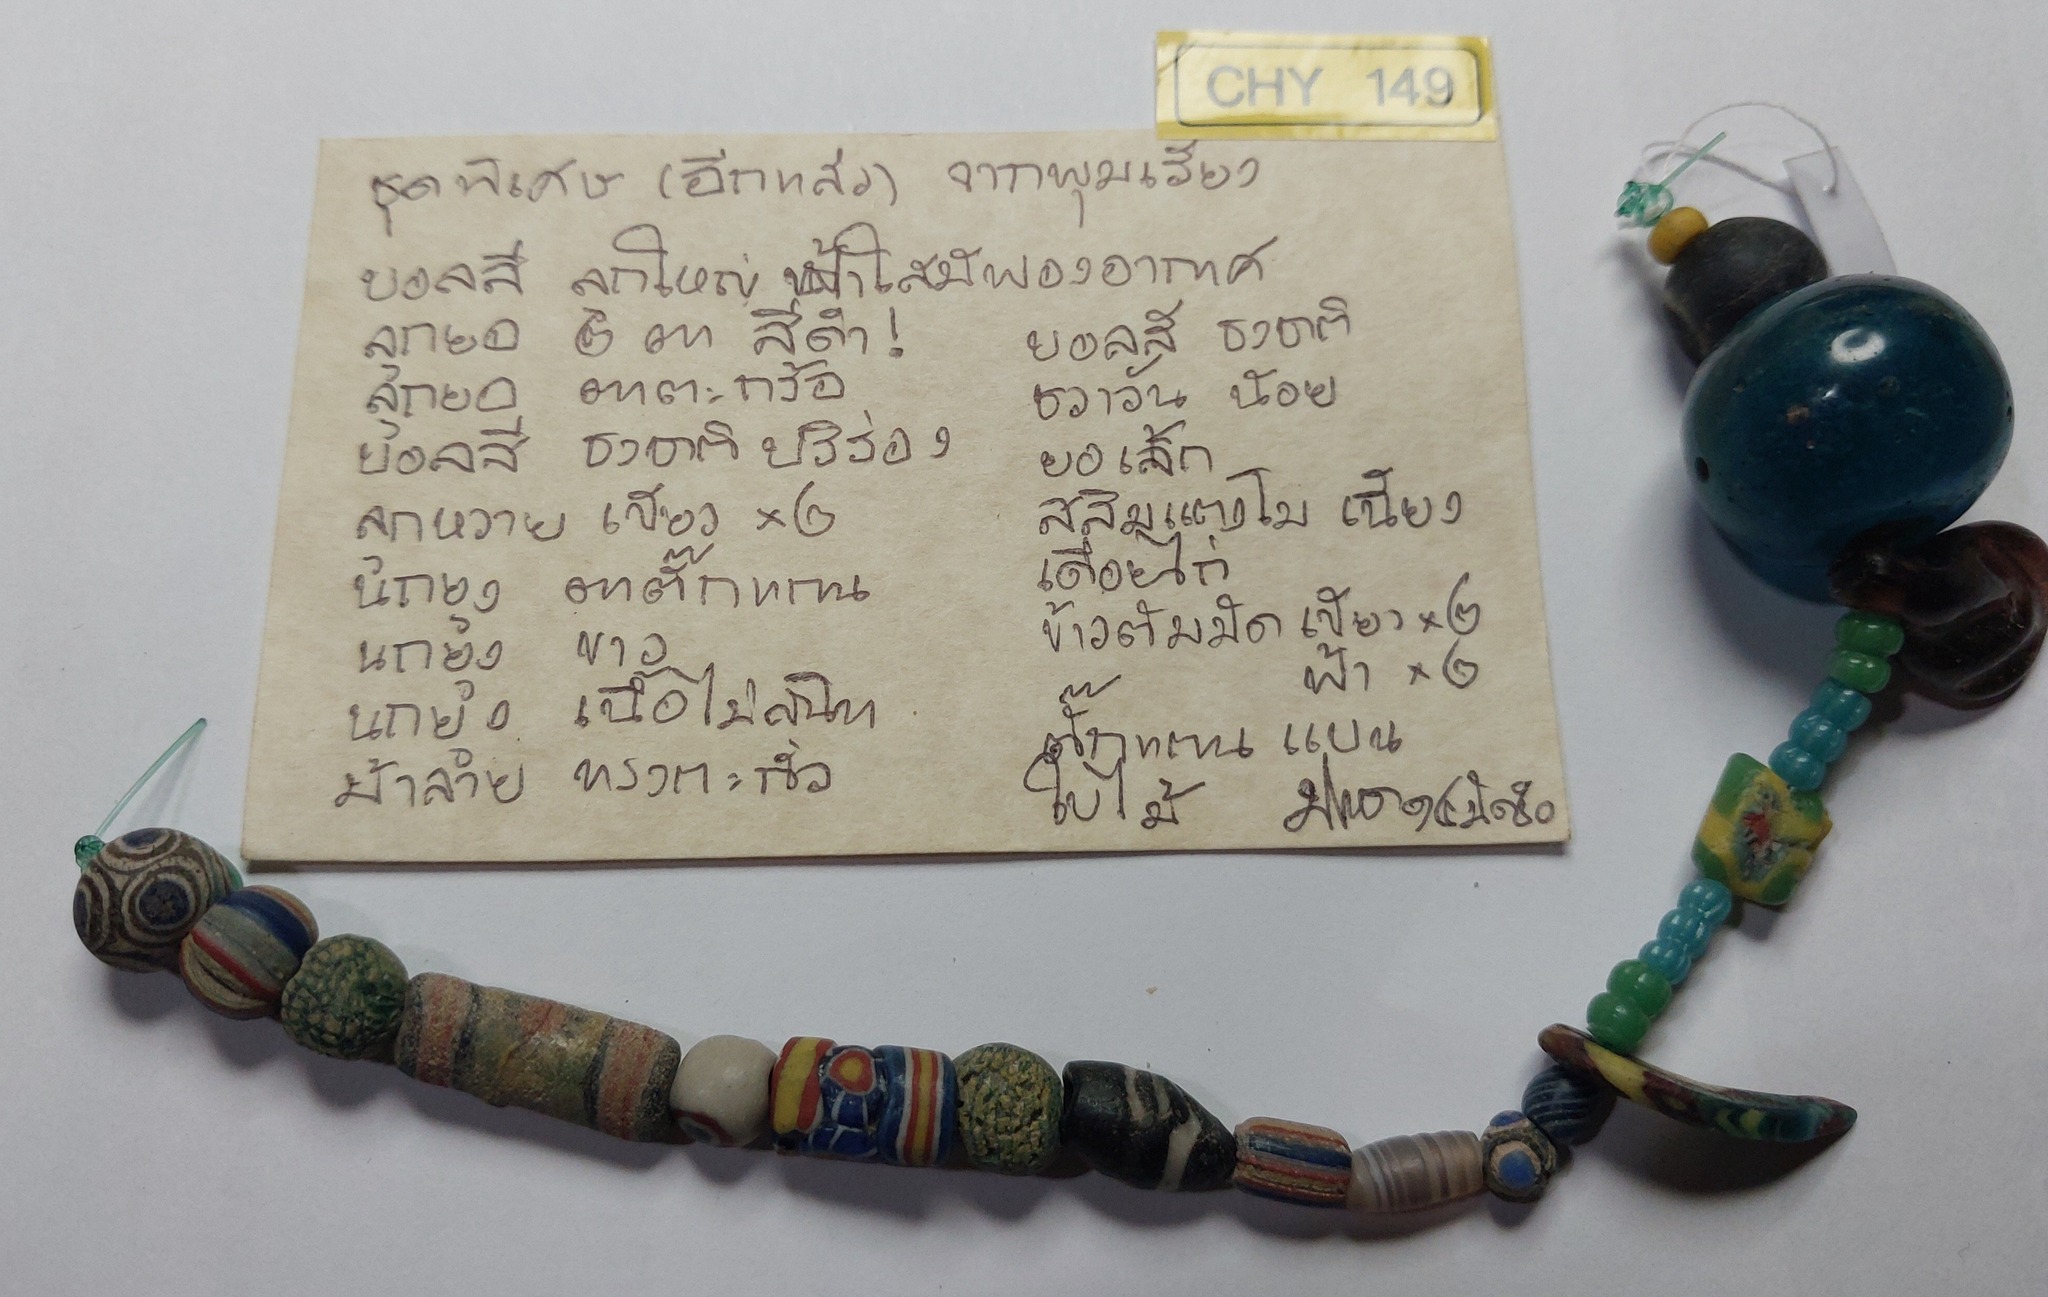 CHY 149
ชุดพิเศษ (อีกแล้ว) จากพุมเรียง
ยอลสี ลูกใหญ่ ฟ้าใสมีฟองอากาศ
ลูกยอ ๒ ตา สีดำ!
ลูกยอ ตาตะกร้อ
ยอลสี ธงชาติ ปริร่อง
ลูกหวาย เขียว ×๒
นกยูง ตาตั๊กแตน
นกยูง ขาว
นกยูง เนื้อไม่สนิท
ม้าลาย ทรงตะกั่ว
ยอลสี ธงชาติ
ทวาวัน น้อย
ยอเล็ก
สีลิ่มแตงโม เนี้ยง
เดือยไก่
ข้าวต้มมัด เขียว ×๒
ฟ้า ×๒
ตั๊กแตน แบน
ใบไม้